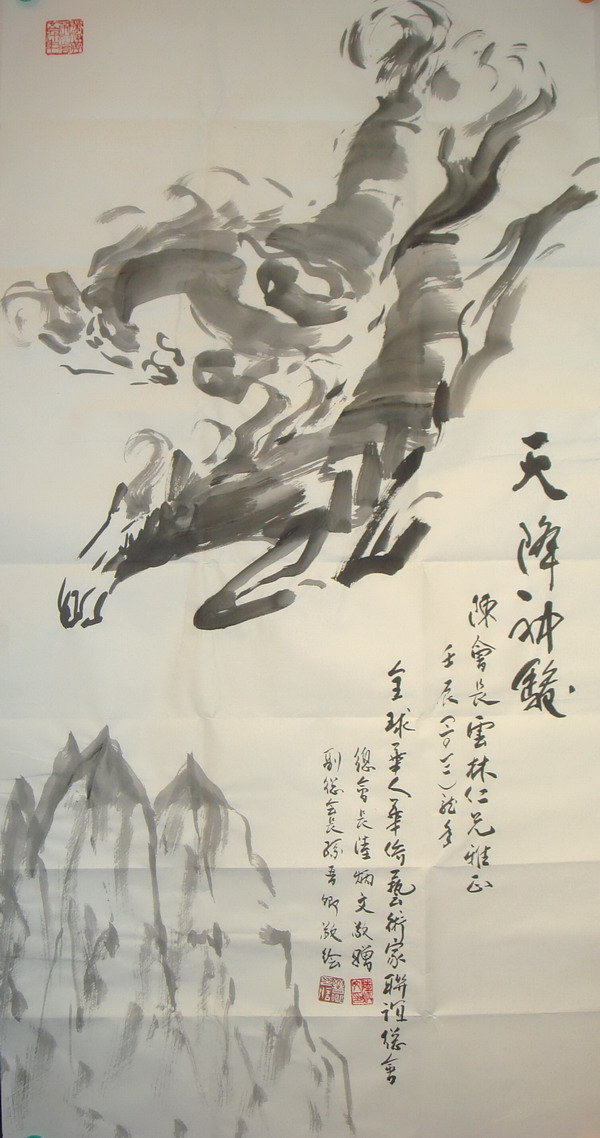 天降神駿
陳會長雲林仁兄雅正
壬辰(二〇一二)龍年
全球華人華僑藝術家聯誼總會
總會長陸炳文敬贈
副總會長孫吾卿敬绘